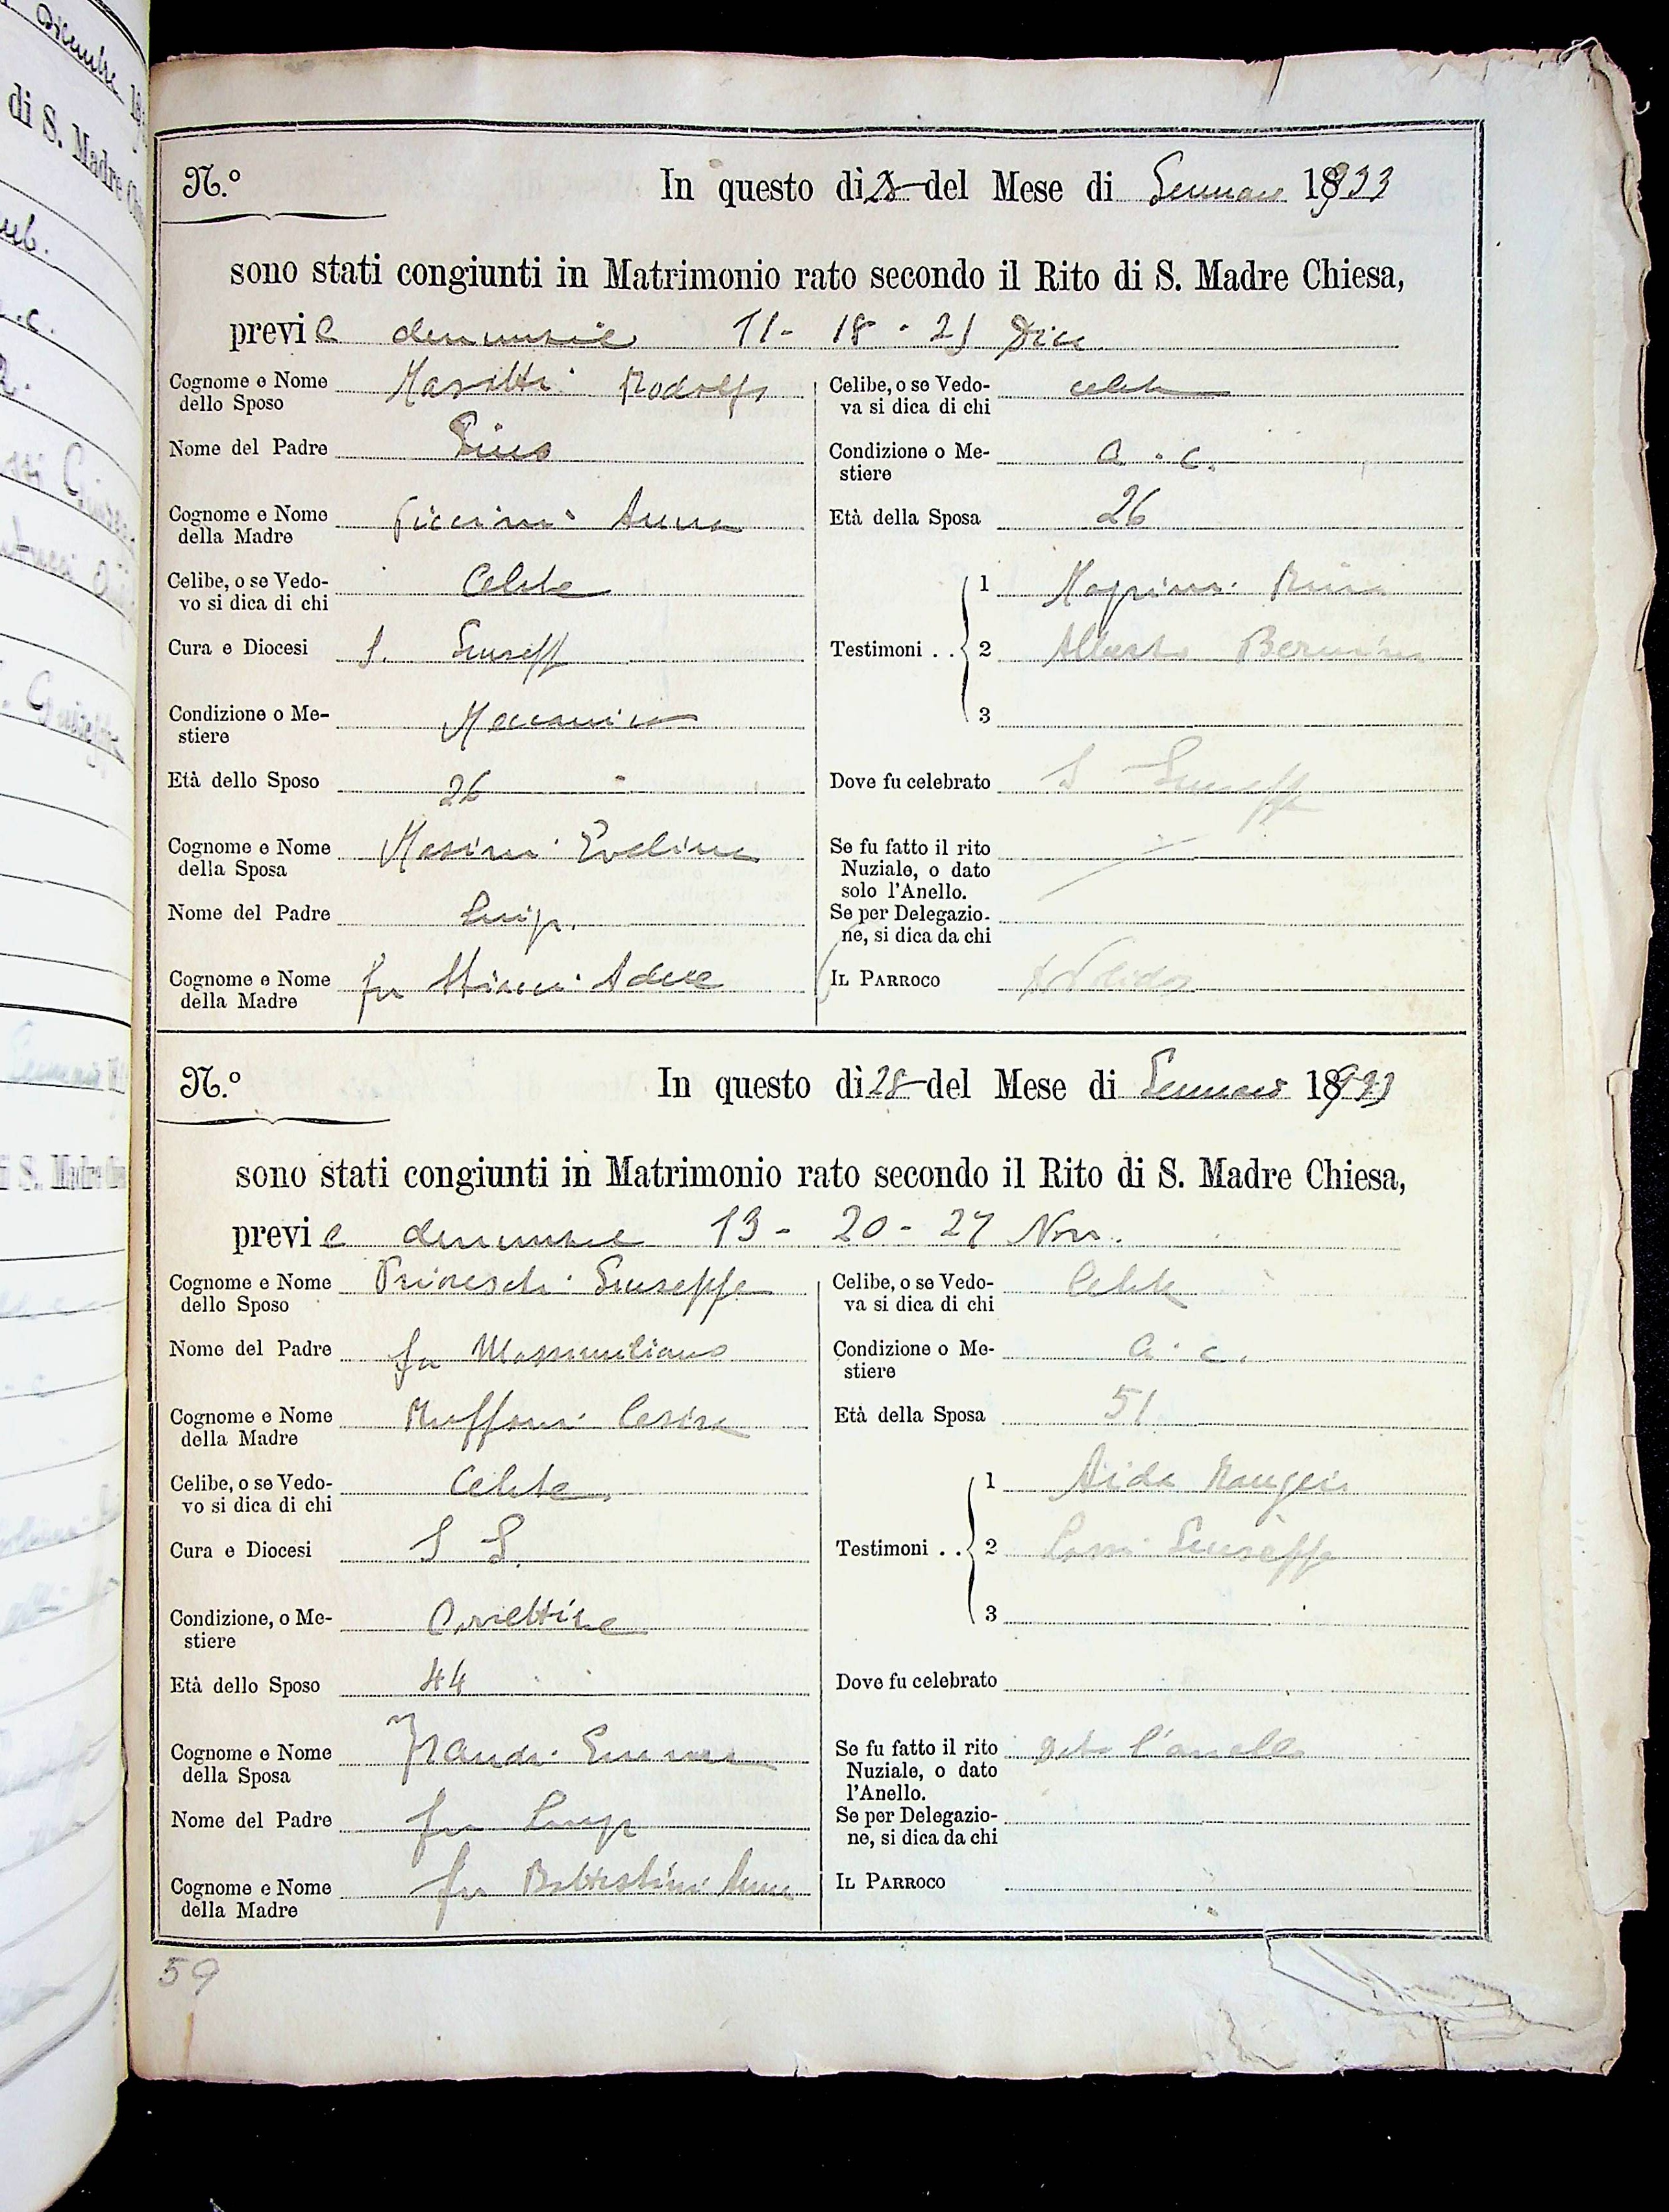 N.º
In questo dì 28 del Mese di Gennaio 1933
sono stati congiunti in Matrimonio rato secondo il Rito di S. Madre Chiesa,
previe denunzie 11 - 18 - 25 Dice
Cognome e Nome
dello Sposo Masotti Rodolfo
Nome del Padre
Cognome e Nome
della Madre Piccini Anna
Celibe, o se Vedo-
vo si dica di chi Celibe
Cura e Diocesi S. Giuseppe
Condizione o Me-
stiere Meccanico
Età dello Sposo 26
Cognome e Nome
della Sposa Masini Evelina
Nome del Padre Luigi
Cognome e Nome
della Madre fu Adele
Celibe, o se Vedo-
va si dica di chi celibe
Condizione o Me-
stiere a. c.
Età della Sposa 26
Testimoni . . 1
2 Alberto
3
Dove fu celebrato S Giuseppe
Se fu fatto il rito
Nuziale, o dato
solo l'Anello.
Se per Delegazio-
ne, si dica da chi
IL PARROCO
N.º
In questo dì 28 del Mese di Gennaio 1933
sono stati congiunti in Matrimonio rato secondo il Rito di S. Madre Chiesa,
previe denunzie 13 - 20 - 27 Nov.
Cognome e Nome
dello Sposo Prioreschi Giuseppe
Nome del Padre fu Massimiliano
Cognome e Nome
della Madre Ruffoni Cesira
Celibe, o se Vedo-
vo si dica di chi Celibe
Cura e Diocesi S G.
Condizione, o Me-
stiere
Età dello Sposo 44
Cognome e Nome
della Sposa Emma
Nome del Padre fu Luigi
Cognome e Nome
della Madre fu Battistini Anna
Celibe, o se Vedo-
va si dica di chi Celibe
Condizione o Me-
stiere a. c.
Età della Sposa 51
Testimoni . . 1 Aida
2 Giuseppe
3
Dove fu celebrato
Se fu fatto il rito
Nuziale, o dato
l'Anello. Dato l'anello
Se per Delegazio-
ne, si dica da chi
IL PARROCO
59